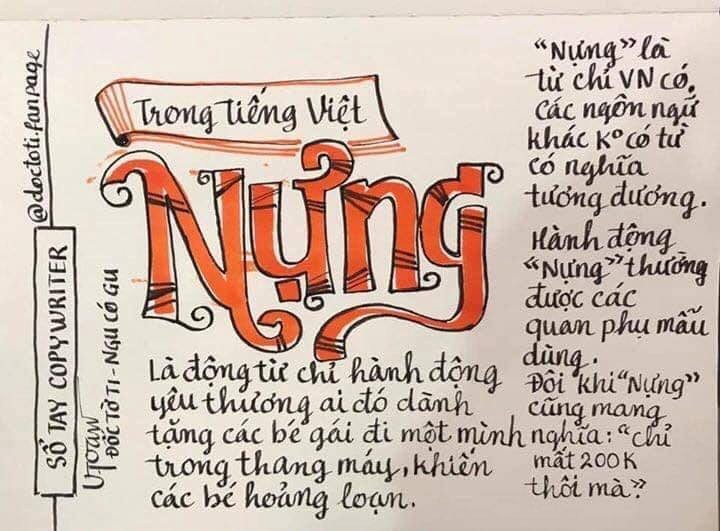 Trong Tiếng Việt
Nựng
Là động từ chỉ hành động
yêu thương ai đó dành
tặng các bé gái đi một mình
trong thang máy, khiến
các bé hoảng loạn.
“Nựng” là
từ chỉ VN có,
các ngôn ngữ
khác ko có từ
có nghĩa
tương đương.
Hành động
“Nựng” thường
được các
quan phụ mẫu
dùng.
Đôi khi “Nựng”
cũng mang
nghĩa: “chỉ
mất 200K
thôi mà”?
@doctoti.fanpage
SỔ TAY COPYWRITER
ĐỐC TỜ TI - NGU CÓ GU